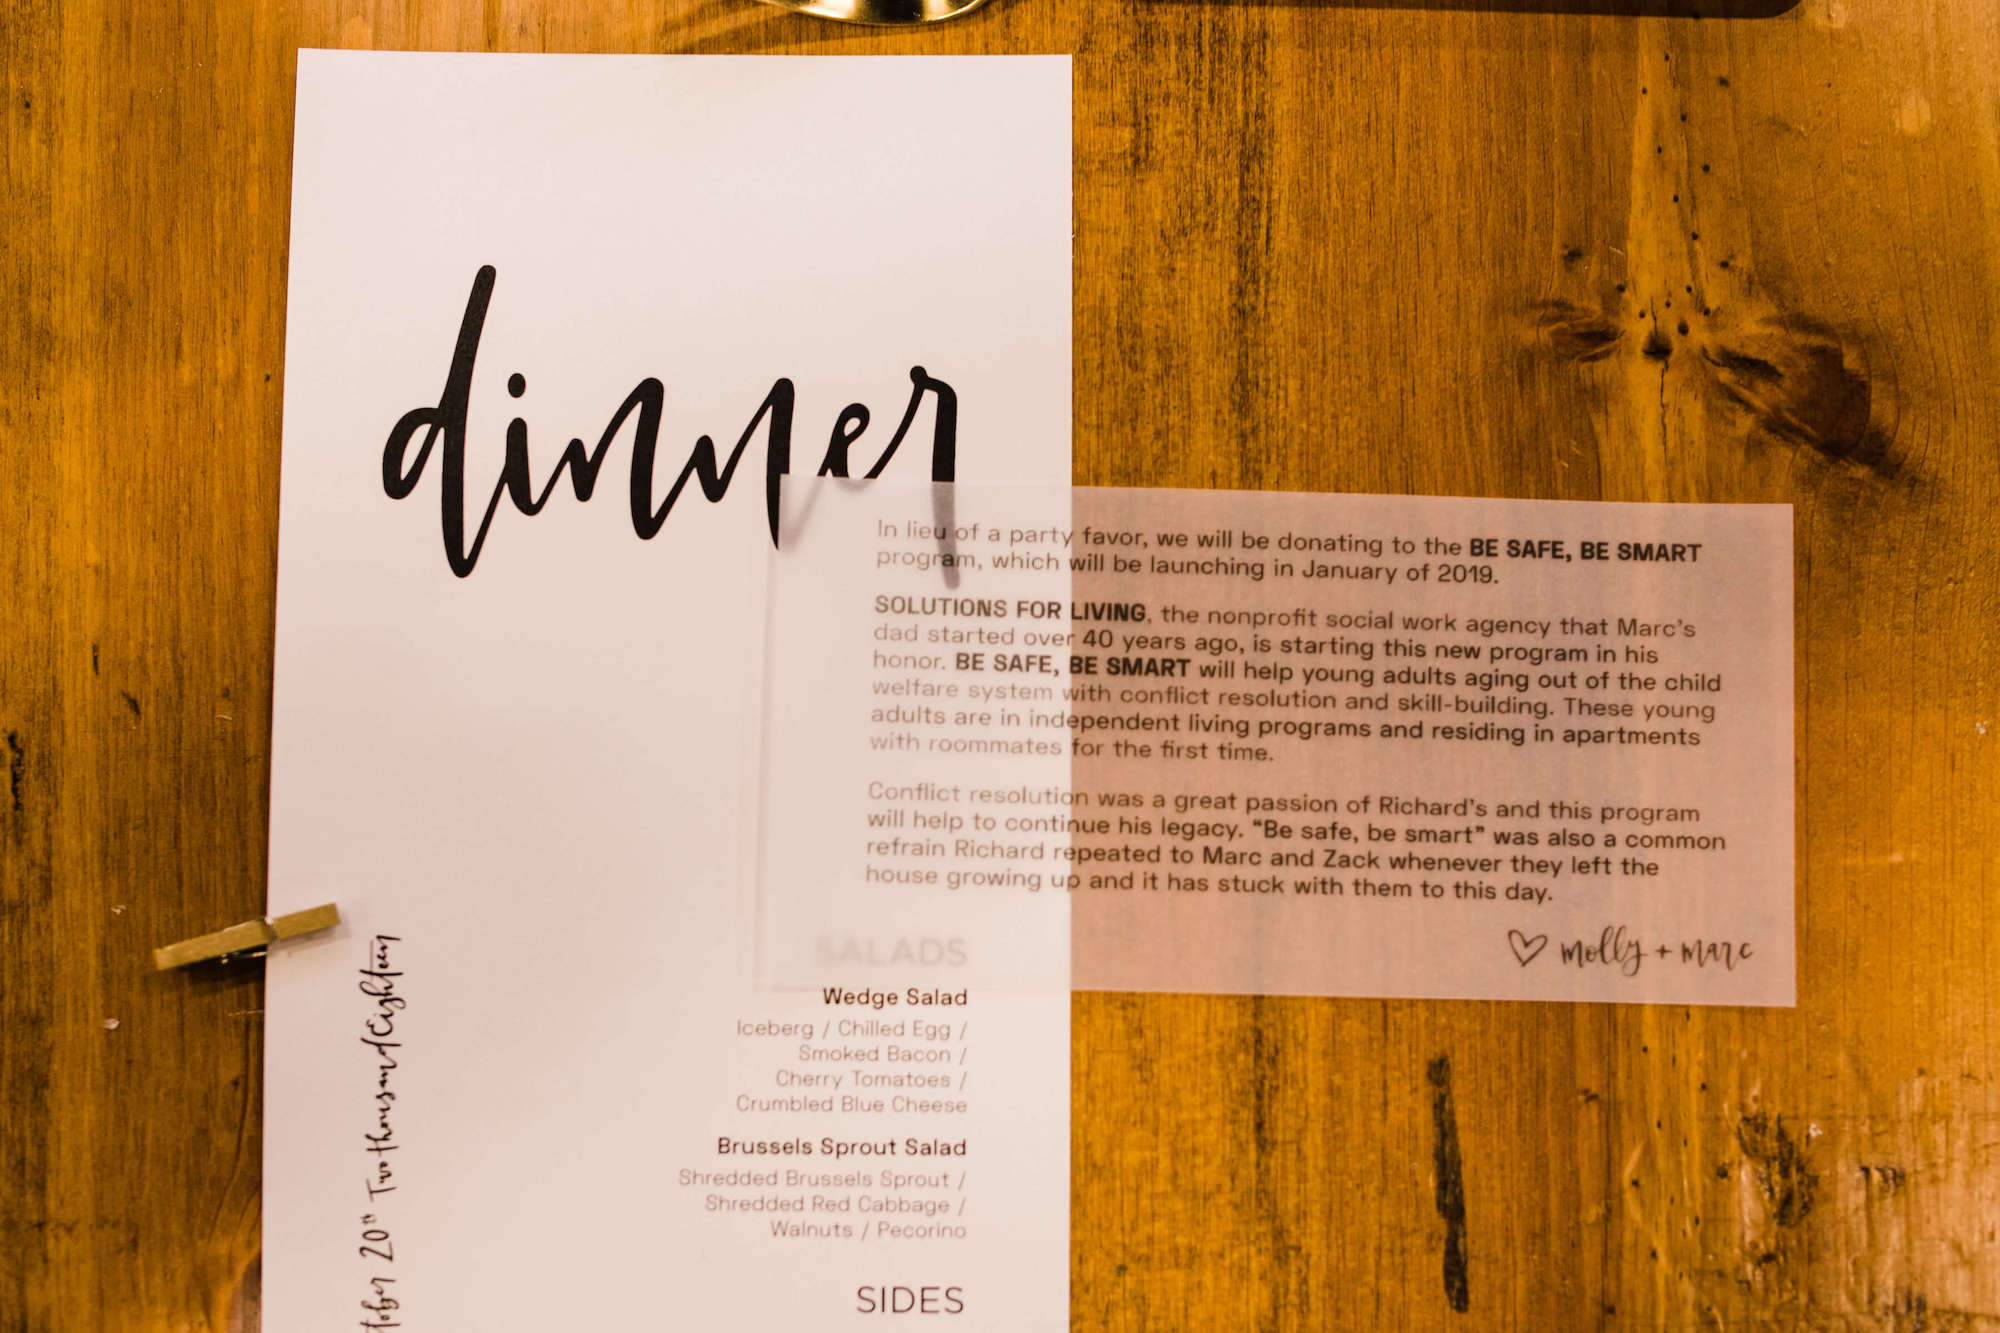 dinner
In lieu of a party favor, we will be donating to the BE SAFE, BE SMART
program, which will be launching in January of 2019.
SOLUTIONS FOR LIVING, the nonprofit social work agency that Marc's
dad started over 40 years ago, is starting this new program in his
honor. BE SAFE, BE SMART will help young adults aging out of the child
welfare system with conflict resolution and skill-building. These young
adults are in independent living programs and residing in apartments
with roommates for the first time.
Conflict resolution was a great passion of Richard's and this program
will help to continue his legacy. "Be safe, be smart" was also a common
refrain Richard repeated to Marc and Zack whenever they left the
house growing up and it has stuck with them to this day.
molly + marc
SALADS
Wedge Salad
Iceberg / Chilled Egg /
Smoked Bacon /
Cherry Tomatoes /
Crumbled Blue Cheese
Brussels Sprout Salad
Shredded Brussels Sprout /
Shredded Red Cabbage /
Walnuts / Pecorino
SIDES
tober 20th Two thousand Eighteen